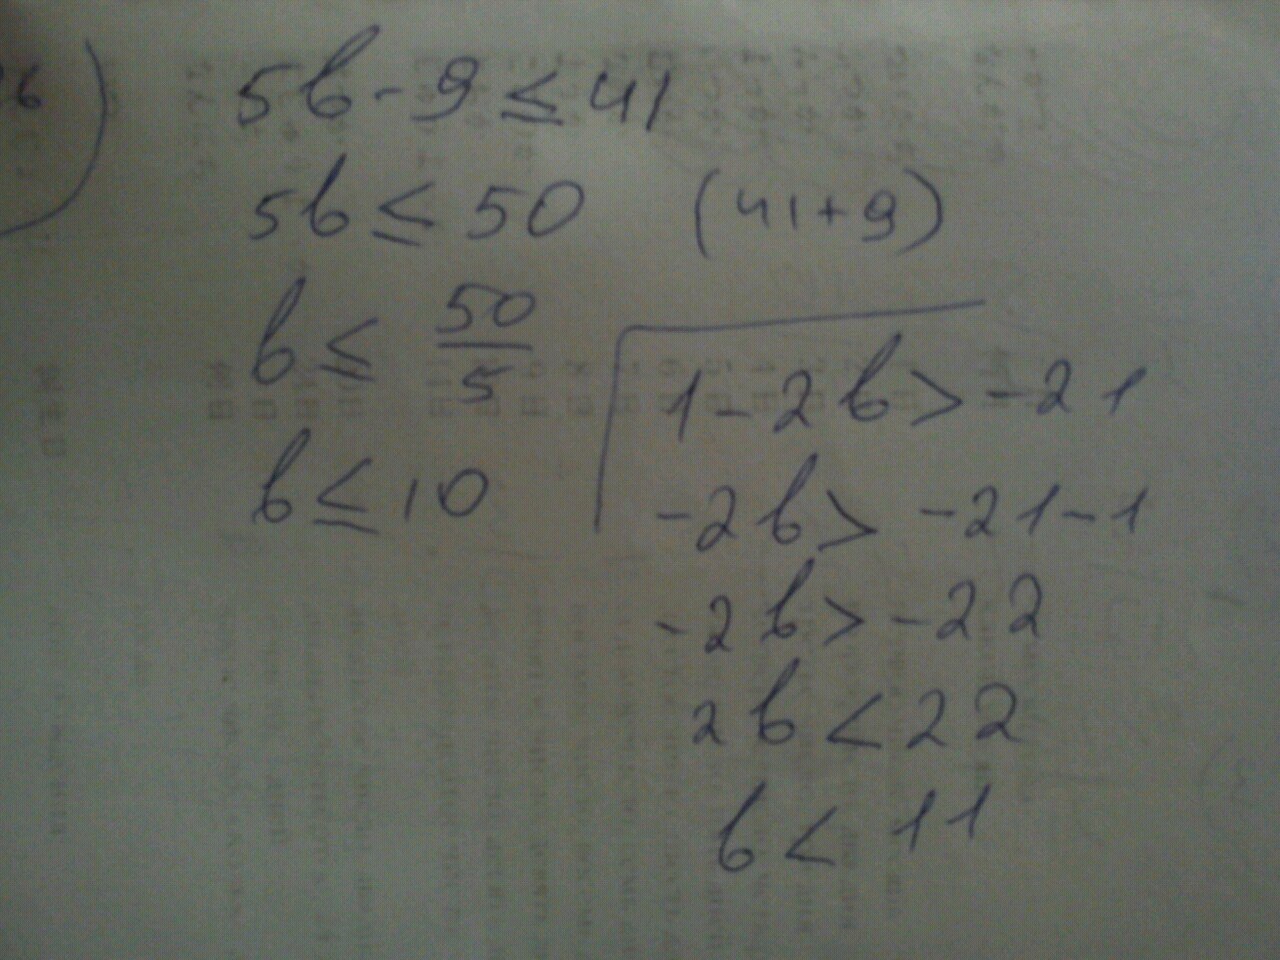 6)
5b - 9 ≤ 41
5b ≤ 50 (41+9)
b ≤ 50/5
b ≤ 10
1 - 2b > -21
-2b > -21-1
-2b > -22
2b < 22
b < 11